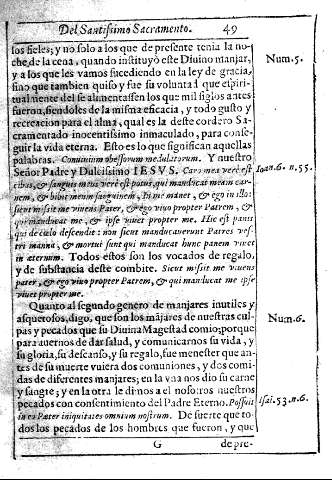 Del Santissimo Sacramento. 49
los fieles; y no solo a los que de presente tenia la no-
che de la cena, quando instituyò este Diuino manjar,
y a los que les vamos sucediendo en la ley de gracia,
sino que tambien quiso y fue su voluntad que espiri-
tualmente del se alimentassen los que mil siglos antes
fueron, siendoles de la misma eficacia, y todo gusto y
recreacion para el alma, qual es la deste cordero Sa-
cramentado inocentissimo inmaculado, para conse-
guir la vida eterna. Esto es lo que significan aquellas
palabras. Conuiuium medulatorum. Y nuestro
Señor Padre y Dulcissimo IESVS. Caro mea verè est
cibus, & sanguis meus verè est potus, qui manducat meam car-
nem, & bibit meum sanguinem, in me manet, & ego in illo:
sicut misit me viuens Pater, & ego viuo propter Patrem, &
qui manducat me, & ipse viuet propter me. Hic est panis
qui de cælo descendit: non sicut manducauerunt Patres ves-
tri manna, & mortui sunt qui manducat hunc panem viuet
in æternum. Todos estos son los vocados de regalo,
y de substancia deste combite. Sicut misit me viuens
pater, & ego viuo propter Patrem, & qui manducat me ipse
viuet propter me.
Quanto al segundo genero de manjares inutiles y
asquerosos, digo, que son los mãjares de nuestras cul-
pas y pecados que su Diuina Magestad comio; porque
para auernos de dar salud, y comunicarnos su vida, y
su gloria, su descanso, y su regalo, fue menester que an-
tes de su muerte vuiera dos comuniones, y dos comi-
das de diferentes manjares; en la vna nos dio su carne
y sangre; y en la otra le dimos a el nosotros nuestros
pecados con consentimiento del Padre Eterno. Possuit
in eo Pater iniquitates omnium nostrum. De suerte que to-
dos los pecados de los hombres que fueron, y que
G de pre-
Num. 5.
Ioan. 6. n. 55.
Num. 6.
Isai. 53. n. 6.